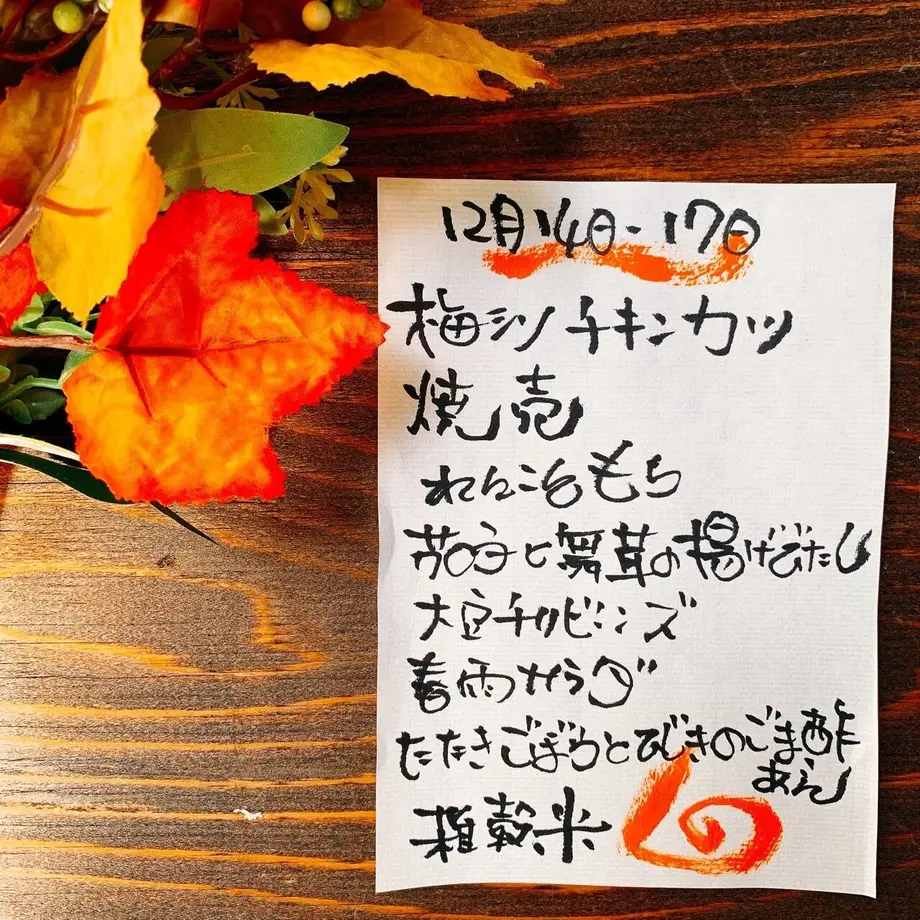 12月14日-17日
梅シソチキンカツ
焼売
れんこんもち
茄子と舞茸の揚げびたし
大豆チリビーンズ
春雨サラダ
たたきごぼうとひじきのごま酢
あえ
雑穀米